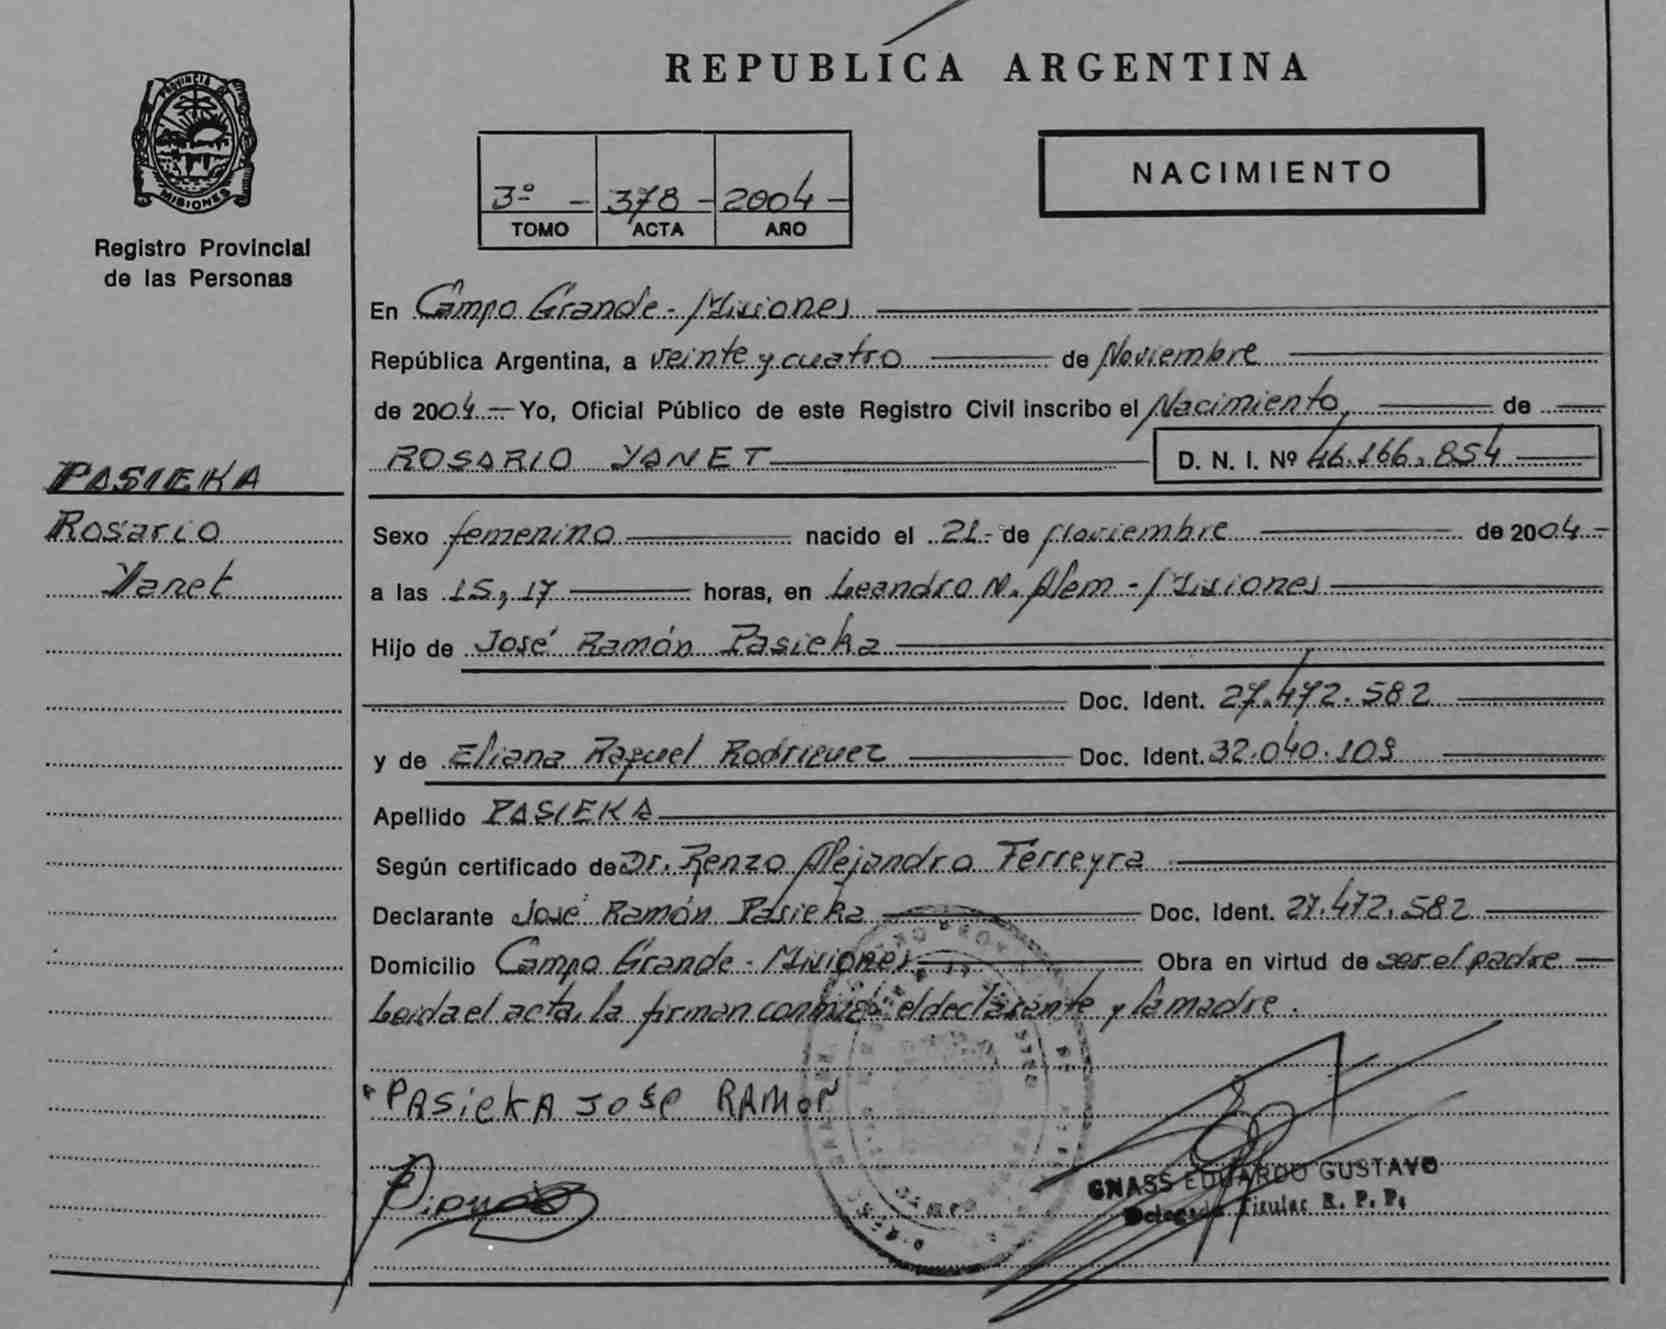 REPUBLICA ARGENTINA
PROVINCIA DE
MISIONES
Registro Provincial
de las Personas
3º - 378 - 2004 -
TOMO ACTA AÑO
NACIMIENTO
En Campo Grande - Misiones
República Argentina, a veinte y cuatro de Noviembre
de 2004.- Yo, Oficial Público de este Registro Civil inscribo el Nacimiento, de
ROSARIO YANET D. N. I. Nº 46.166.854
PASIEKA
Rosario
Yanet
Sexo femenino nacido el 21- de Noviembre de 2004-
a las 15,17 horas, en Leandro N. Alem - Misiones
Hijo de José Ramón Pasieka
Doc. Ident. 27.472.582
y de Eliana Raquel Rodriguez Doc. Ident. 32.040.109
Apellido PASIEKA
Según certificado de Dr. Renzo Alejandro Ferreyra
Declarante José Ramón Pasieka Doc. Ident. 27.472.582
Domicilio Campo Grande - Misiones Obra en virtud de ser el padre
Leida el acta, la firman conmigo el declarante y la madre.
PASiekA JoSe RAMoN
GNASS EDUARDO GUSTAVO
Delegado Titular R. P. P.